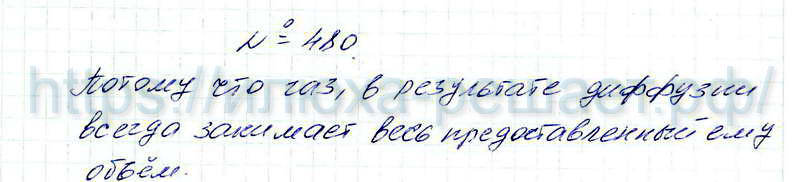 № 480.
Потому что газ, в результате диффузии
всегда занимает весь предоставленный ему
объём.